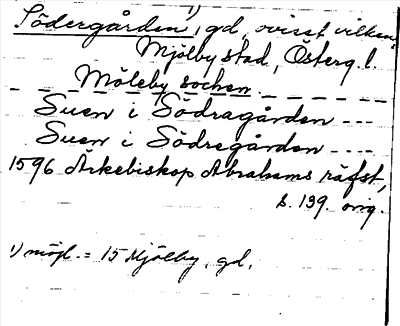 Södergården ¹⁾, gd, ovisst vilken,
Mjölby stad, Österg. l.
Möleby sochen
Suen i Södragården ----
Suen i Södregården ----
1596 Ärkebiskop Abrahams räfst,
s. 139. orig.
1) möjl. = 15 Mjölby, gd.